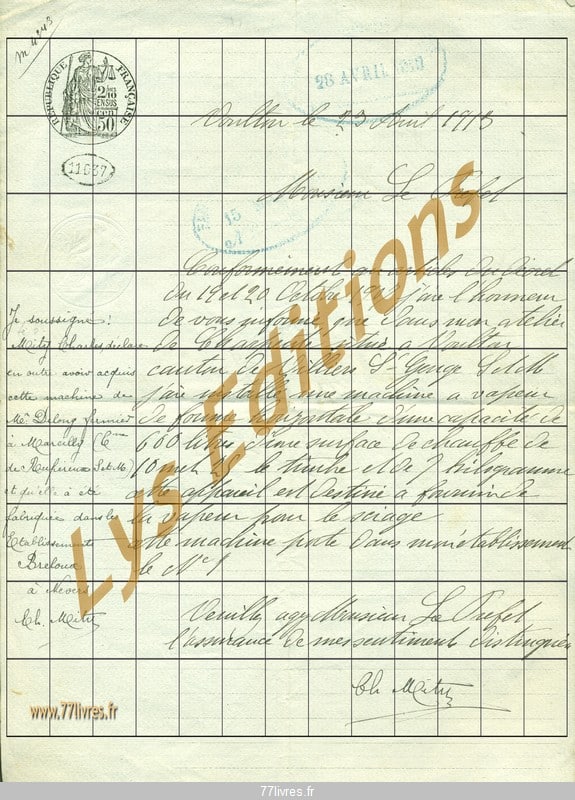 m 4943
RÉPUBLIQUE FRANÇAISE
2/10
EN SUS
CEN
50
11637
28 AVRIL 1913
Voulton le 23 Avril 1913
Monsieur Le Préfet
15
Conformément articles du décret
du 19 et 20 Octobre j'aie l'honneur
de vous informé que dans mon atelier
de à Voulton
canton de Villiers St Georges S et M
j'aie installé une machine a vapeur
de forme horizontale d'une capacité de
600 litres d'une surface de chauffe de
10 met 25 le timbre et de 7 kilogramme
cette appareil est destiné a fournir de
la vapeur pour le sciage
cette machine porte dans mon établissement
le No 1
Veuillez agr Monsieur Le Préfet
l'assurance de mes sentiments distingués
Ch Mity
Je soussigné:
Mity Charles déclare
en outre avoir acquis
cette machine de
Mr Delong fermier
à Marcilly
de Rupéreux S et M)
et qu'elle à été
fabriquée dans les
Etablissements
Breloux
à Nevers
Ch. Mity
Lys Editions
www.77livres.fr
77livres.fr